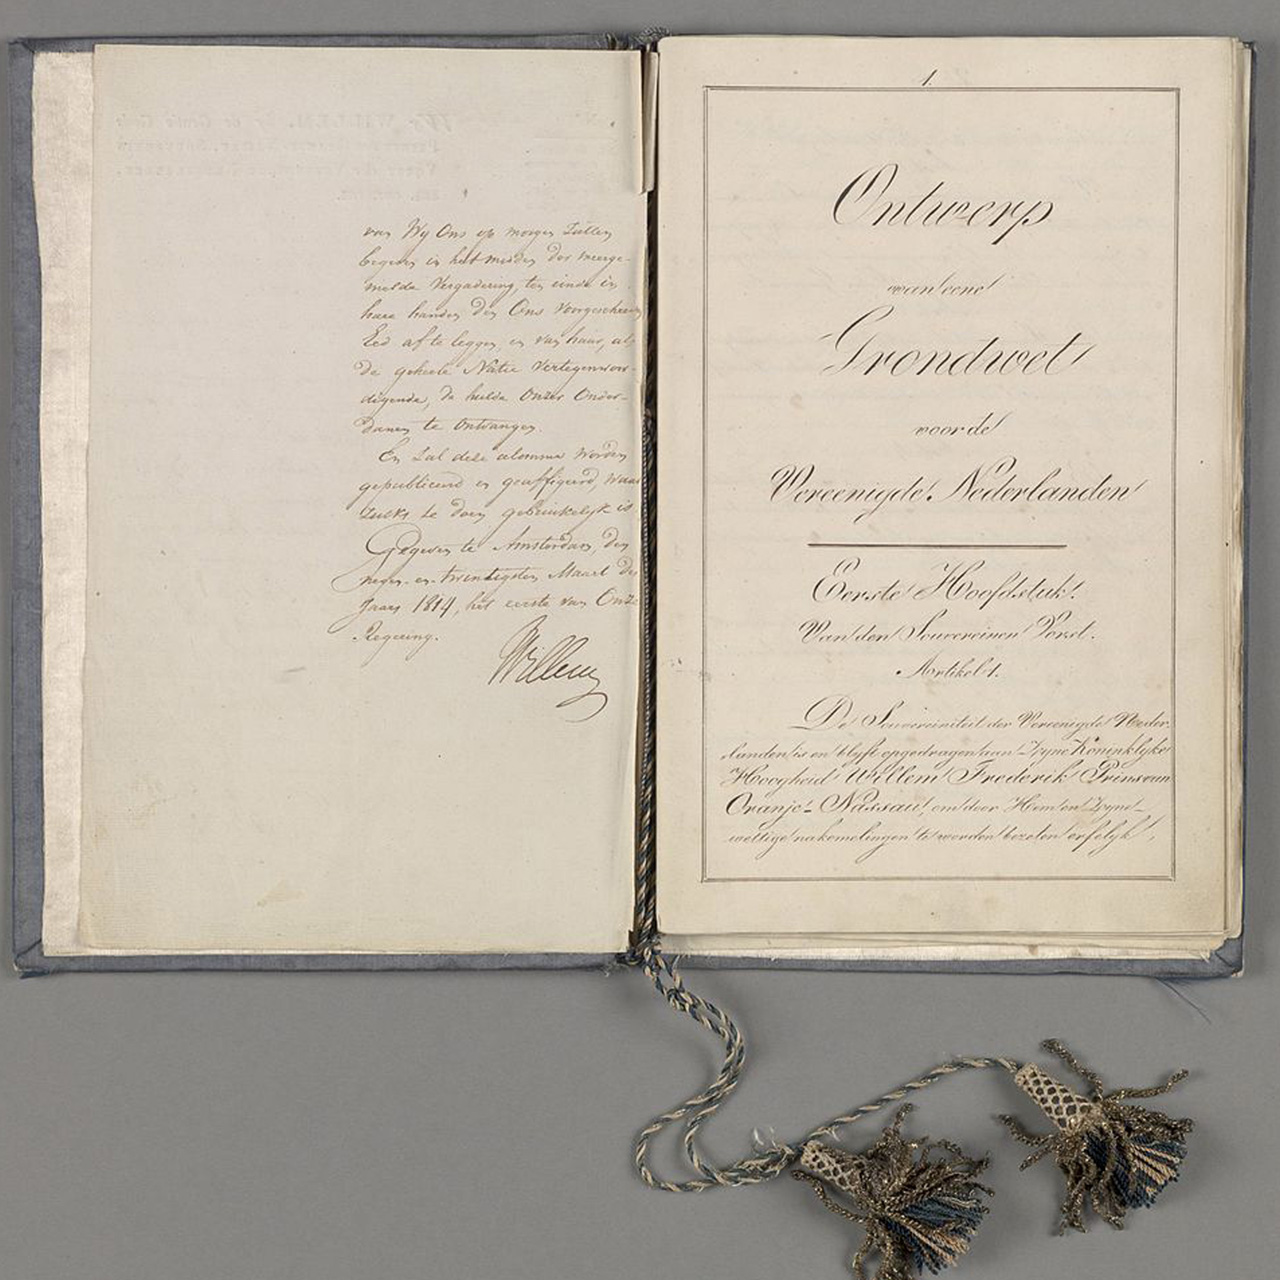 van Wy Ons op morgen zullen
begeven in het midden der meerge-
melde Vergadering, ten einde in
hare handen den Ons voorgeschreven
Eed af te leggen, en van haar, als
de geheele Natie vertegenwoor-
digende, de hulde Onzer Onder-
danen te ontvangen.
En zal deze alomme worden
gepubliceerd en geaffigeerd, waar
zulks te doen gebruikelyk is
Gegeven te Amsterdam, den
negen-en-twintigsten Maart des
Jaars 1814, het eerste van Onze
Regeering.
Willem
1.
Ontwerp
van eene
Grondwet
voor de
Vereenigde Nederlanden
Eerste Hoofdstuk.
Van den Souvereinen Vorst.
Artikel 1.
De Souvereiniteit der Vereenigde Neder-
landen is en blyft opgedragen aan Zyne Koninklyke
Hoogheid Willem Frederik Prins van
Oranje-Nassau, om door Hem en Zyne
wettige nakomelingen te worden bezeten erfelyk,